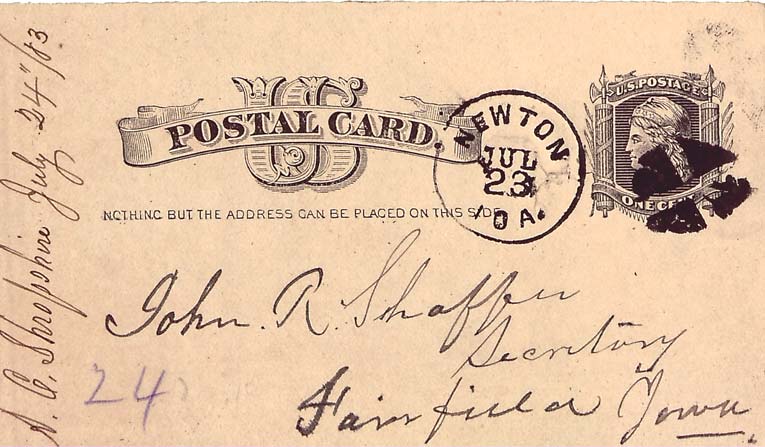 US
POSTAL CARD.
NOTHING BUT THE ADDRESS CAN BE PLACED ON THIS SIDE
NEWTON
JUL
23
IOA.
U.S. POSTAGE
ONE CENT
John. R. Shaffer
Secretary
Fairfield Iowa
24
Shropshire July 24"/83